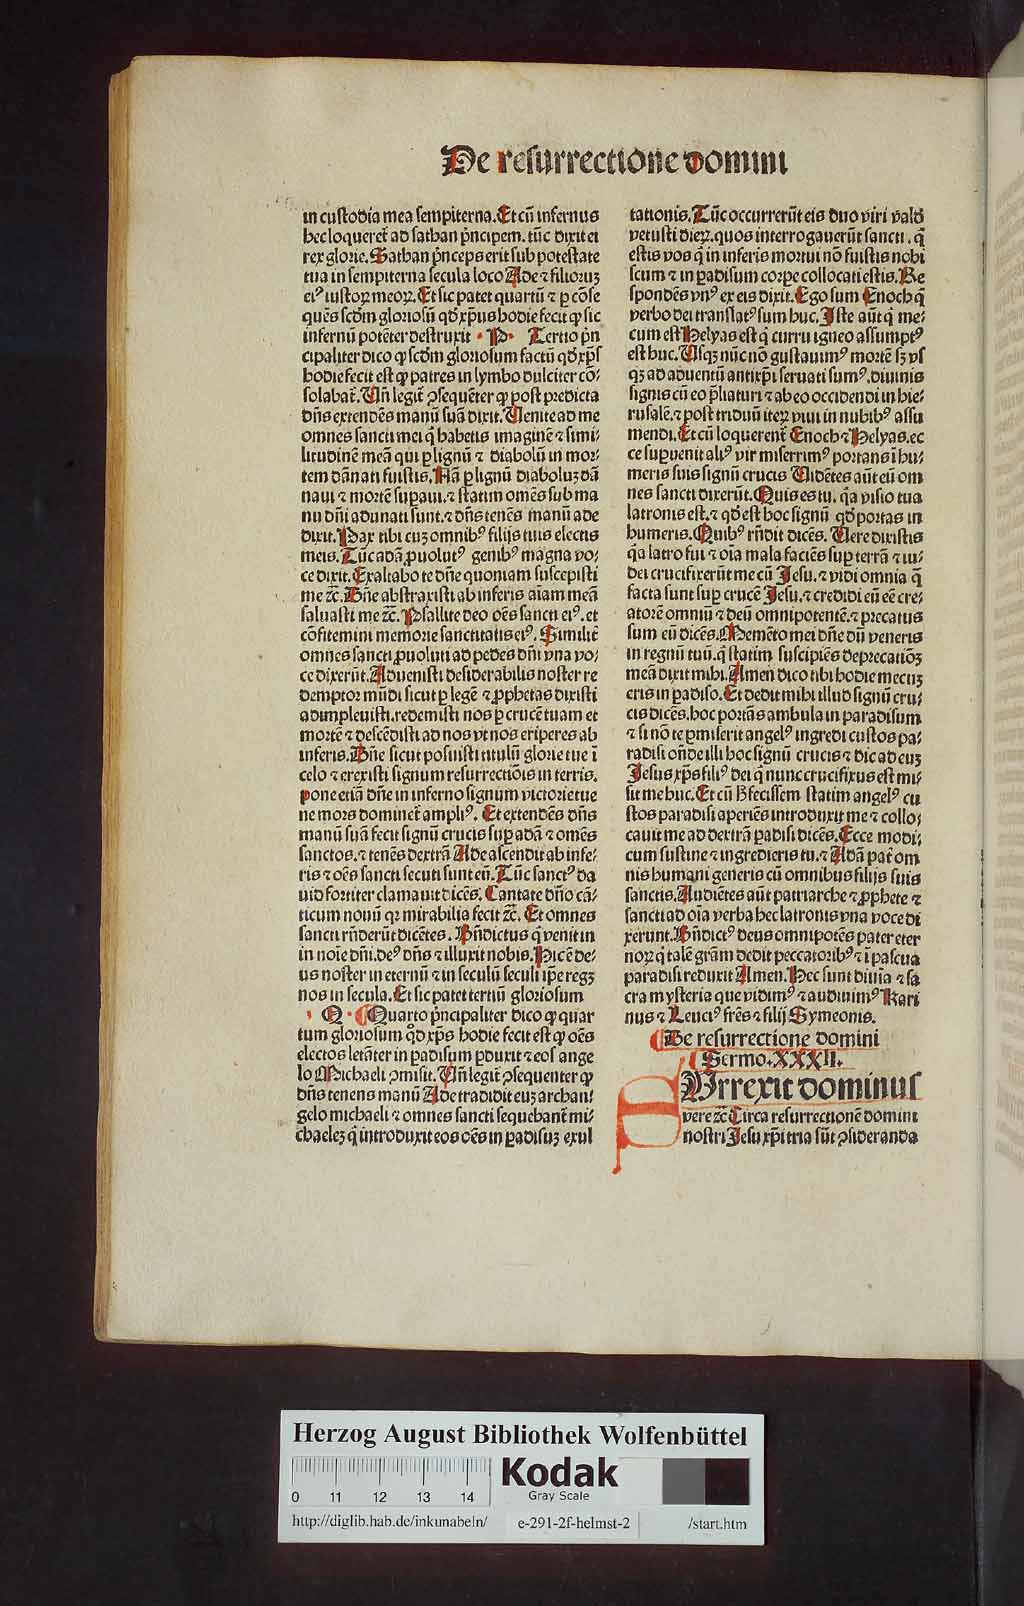 De resurrectione domini
in custodia mea sempiterna. Et cū infernus
hec loqueret᷑ ad sathan p̄ncipem. tūc dixit ei
rex glorie. Sathan p̄nceps erit sub potestate
tua in sempiterna secula loco Ade ⁊ filioruꝫ
eiꝰ iustoꝝ meoꝝ. Et sic patet quartū ⁊ ꝑ cōse
quēs scd̄m gloriosū qd̓ xp̄us hodie fecit ꝙ sic
infernū potēter destruxit · P · Tertio p̄n
cipaliter dico ꝙ scd̄m gloriosum factū qd̓ xp̄s
hodie fecit est ꝙ patres in lymbo dulciter cō⸗
solabat᷑. Vn̄ legit᷑ ꝯsequēter ꝙ post predicta
dn̄s extendēs manū suā dixit. Venite ad me
omnes sancti mei q̇ habetis imaginē ⁊ simi⸗
litudinē meā qui ꝑ lignū ⁊ diabolū in mor⸗
tem dānati fuistis. Nā ꝑ lignū diaboluꝫ dā
naui ⁊ mortē suꝑaui. ⁊ statim omēs sub ma
nu dn̄i adunati sunt. ⁊ dn̄s tenēs manū ade
dixit. Pax tibi cuꝫ omnibꝰ filijs tuis electis
meis. Tūc adā ꝓuolutꝰ genibꝰ magna vo⸗
ce dixit. Exaltabo te dn̄e quoniam suscepisti
me ⁊c̄. Dn̄e abstraxisti ab inferis aīam meā
saluasti me ⁊c̄. Psallite deo oēs sancti eiꝰ. et
cōfitemini memorie sanctitatis eiꝰ. Similit᷑
omnes sancti ꝓuoluti ad pedes dn̄i vna vo⸗
ce dixerūt. Aduenisti desiderabilis noster re
demptor mūdi sicut ꝑ legē ⁊ ꝓphetas dixisti
adimpleuisti. redemisti nos ꝑ crucē tuam et
mortē ⁊ descēdisti ad nos vt nos eriperes ab
inferis. Dn̄e sicut posuisti titulū glorie tue ī
celo ⁊ erexisti signum resurrectiōis in terris.
pone etiā dn̄e in inferno signum victorie tue
ne mors dominet᷑ ampliꝰ. Et extendēs dn̄s
manū suā fecit signū crucis suꝑ adā ⁊ omēs
sanctos. ⁊ tenēs dextrā Ade ascendit ab infe⸗
ris ⁊ oēs sancti secuti sunt eū. Tūc sanctꝰ da
uid fortiter clamauit dicēs. Cantate dn̄o cā⸗
ticum nouū qꝛ mirabilia fecit ⁊c̄. Et omnes
sancti rn̄derūt dicētes. Bn̄dictus q̇ venit in
in noīe dn̄i. deꝰ dn̄s ⁊ illuxit nobis. Hic ē de⸗
us noster in eternū ⁊ in seculū seculi ip̄e regꝫ
nos in secula. Et sic patet tertiū gloriosum
· Q · Quarto p̄ncipaliter dico ꝙ quar
tum gloriosum qd̓ xp̄s hodie fecit est ꝙ oēs
electos letāter in ꝑadisum ꝑduxit ⁊ eos ange
lo Michaeli ꝯmisit. Vn̄ legit᷑ ꝯsequenter ꝙ
dn̄s tenens manū Ade tradidit euꝫ archan⸗
gelo michaeli ⁊ omnes sancti sequebant᷑ mi⸗
chaeleꝫ q̇ introduxit eos oēs in ꝑadisuꝫ exul
tationis. Tūc occurrerūt eis duo viri vald̓
vetusti dieꝝ. quos interrogauerūt sancti. q̇
estis vos q̇ in inferis mortui nō fuistis nobi
scum ⁊ in ꝑadisum corꝑe collocati estis. Re
spondēs vnꝰ ex eis dixit. Ego sum Enoch q̇
verbo dei translatꝰ sum huc. Iste aūt q̇ me⸗
cum est Helyas est q̇ curru igneo assumptꝰ
est huc. Vsqꝫ nūc nō gustauimꝰ mortē sꝫ vs
qꝫ ad aduentū antixp̄i seruati sumꝰ. diuinis
signis cū eo p̄liaturi ⁊ ab eo occidendi in hie⸗
rusalē. ⁊ post triduū iteꝝ viui in nubibꝰ assu
mendi. Et cū loquerent᷑ Enoch ⁊ Helyas. ec
ce suꝑuenit aliꝰ vir miserrimꝰ portans ī hu⸗
meris suis signū crucis Vidētes aūt eū om
nes sancti dixerūt. Quis es tu. q̄a visio tua
latronis est. ⁊ qd̓ est hoc signū qd̓ portas in
humeris. Quibꝰ rn̄dit dicēs. Vere dixistis
q̄a latro fui ⁊ oīa mala faciēs suꝑ terrā ⁊ iu⸗
dei crucifixerūt me cū Iesu. ⁊ vidi omnia q̄
facta sunt suꝑ crucē Iesu. ⁊ credidi eū eē cre⸗
atorē omniū ⁊ deū omnipotentē. ⁊ precatus
sum eū dicēs. Memēto mei dn̄e dū veneris
in regnū tuū. q̇ statim suscipiēs deprecatiōꝫ
meā dixit mihi. Amen dico tibi hodie mecuꝫ
eris in ꝑadiso. Et dedit mihi illud signū cru⸗
cis dicēs. hoc portās ambula in paradisum
⁊ si nō te ꝑmiserit angelꝰ ingredi custos pa⸗
radisi on̄de illi hoc signū crucis ⁊ dic ad euꝫ
Iesus xp̄s filiꝰ dei q̇ nunc crucifixus est mi⸗
sit me huc. Et cū ħ fecissem statim angelꝰ cu
stos paradisi aperiēs introduxit me ⁊ collo⸗
cauit me ad dextrā ꝑadisi dicēs. Ecce modi⸗
cum sustine ⁊ ingredieris tu. ⁊ Adā pat᷑ om
nis humani generis cū omnibus filijs suis
sanctis. Audiētes aūt patriarche ⁊ ꝓphete ⁊
sancti ad oīa verba hec latronis vna voce di
xerunt. Bn̄dictꝰ deus omnipotēs pater eter
noꝝ q̇ talē gr̄am dedit peccatoribꝰ ⁊ ī pascua
paradisi reduxit Amen. Hec sunt diuīa ⁊ sa
cra mysteria que vidimꝰ ⁊ audiuimꝰ Kari
nus ⁊ Leuciꝰ fr̄es ⁊ filij Symeonis.
De resurrectione domini
Sermo. XXXII.
SVrrexit dominus
vere ⁊c̄ Circa resurrectionē domini
nostri Iesu xp̄i tria sūt ꝯsideranda
Herzog August Bibliothek Wolfenbüttel
0 11 12 13 14
Kodak
Gray Scale
http://diglib.hab.de/inkunabeln/ e-291-2f-helmst-2 /start.htm